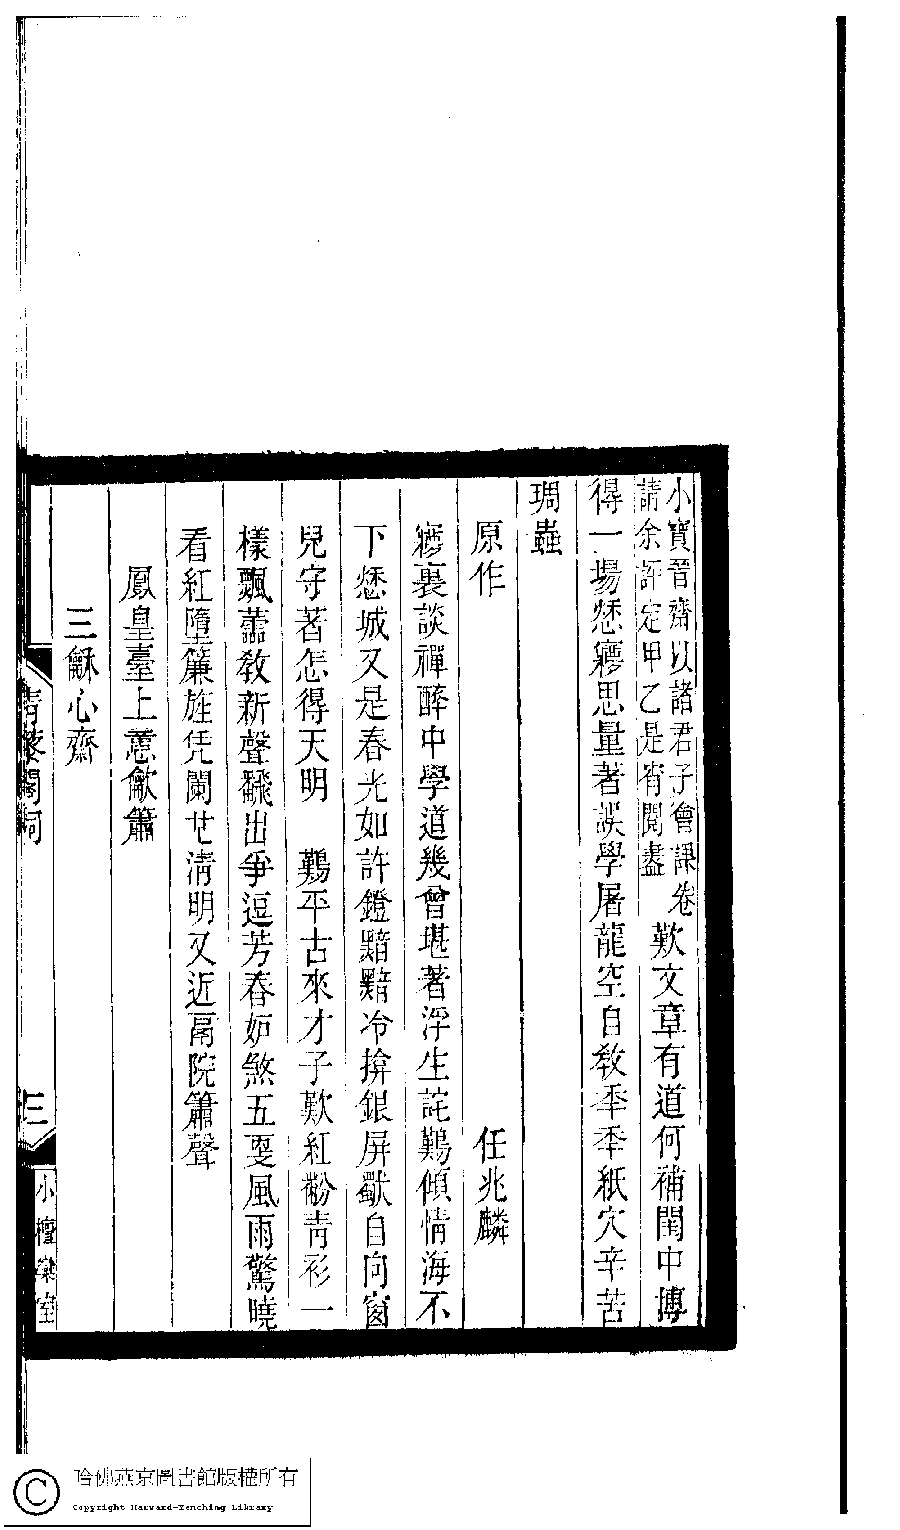 小寶晉齋以諸君子會課卷
請余評定甲乙是宵閱盡
歎文章有道何補閨中摶
得一場愁㝱思量著誤學屠龍空自敎秊秊紙穴辛苦
琱蟲
原作 任兆麟
㝱裏談禪醉中學道幾曾堪著浮生詫鷬傾情海不
下愁城又是春光如許鐙黯黯冷揜銀屏歡自向窗
兒守著怎得天明 鷬平古來才子歎紅粉青衫一
樣飄蕭敎新聲飜出爭逗芳春妒煞五更風雨驚曉
看紅墮簾旌凭闌也淸明又近鬲院簫聲
鳳皇臺上憶龡簫
三龢心齋
青藜閣詞
三
小檀欒室
哈佛燕京圖書館版權所有
Copyright Harvard-Yenching Library